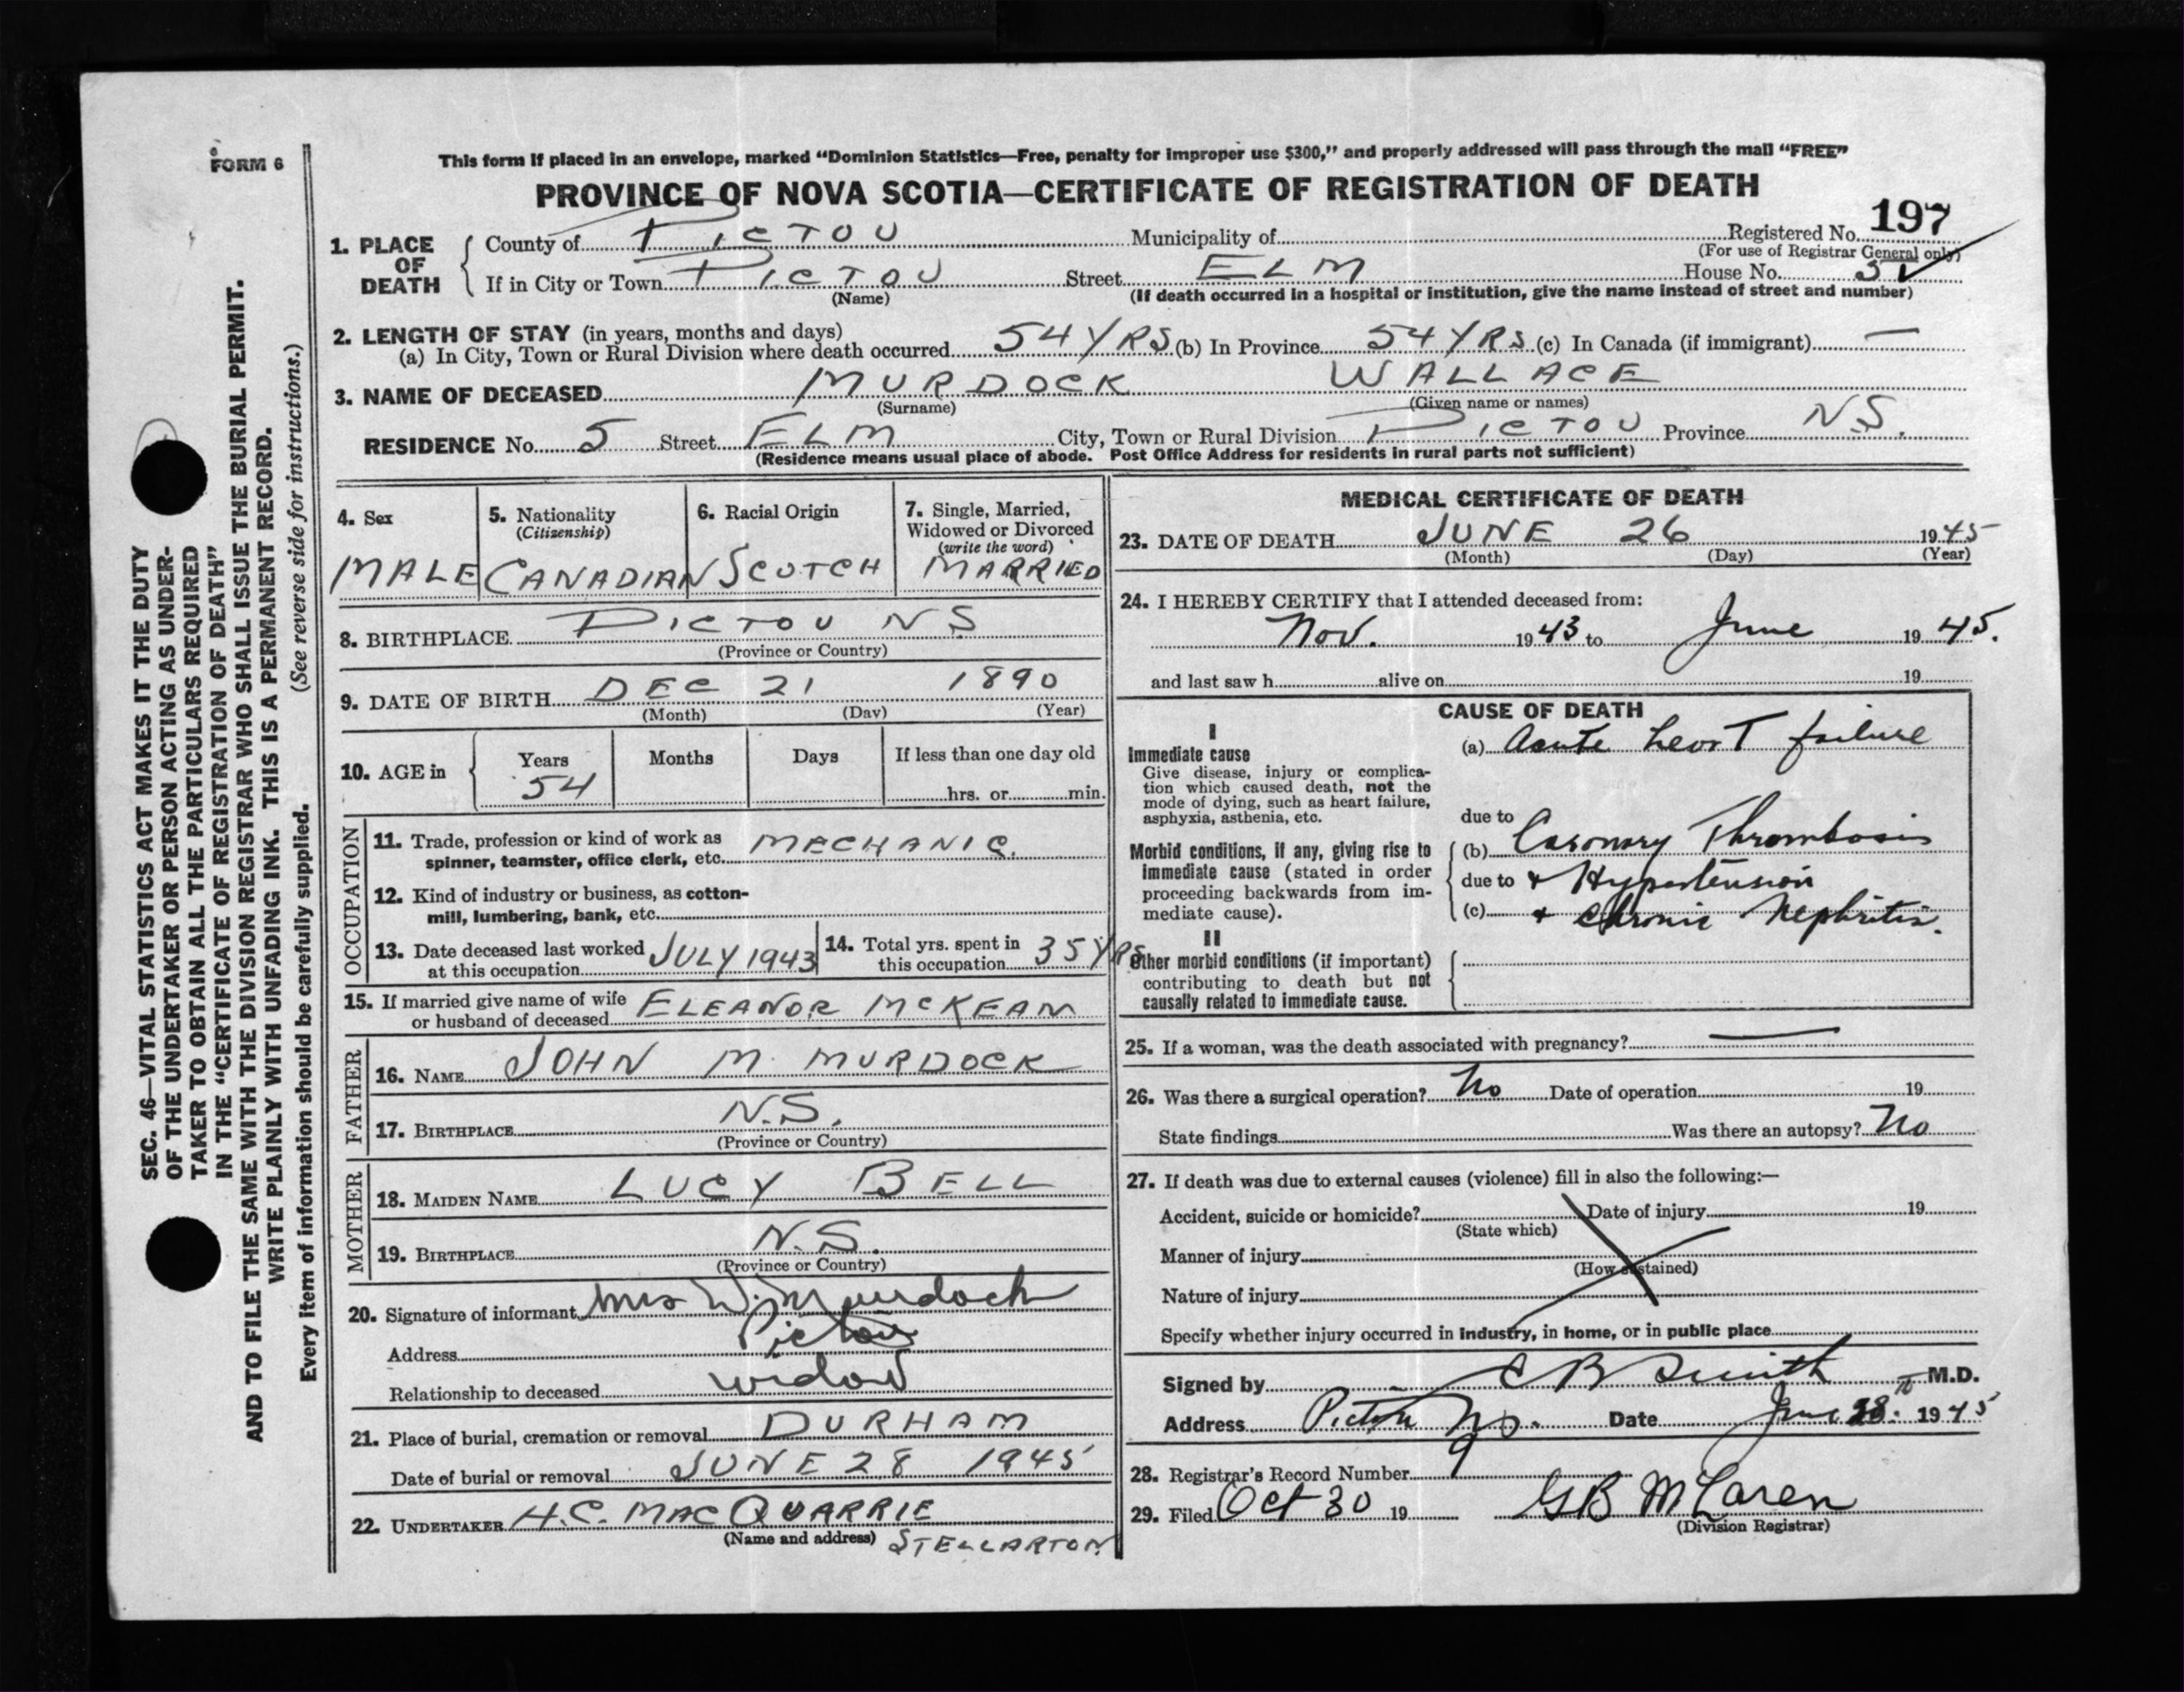 FORM 6
This form if placed in an envelope, marked “Dominion Statistics—Free, penalty for improper use $300,” and properly addressed will pass through the mail “FREE”
PROVINCE OF NOVA SCOTIA—CERTIFICATE OF REGISTRATION OF DEATH
Registered No. 197
(For use of Registrar General only)
1. PLACE OF DEATH
County of PICTOU Municipality of
If in City or Town PICTOU Street ELM House No. 5
(Name) (If death occurred in a hospital or institution, give the name instead of street and number)
2. LENGTH OF STAY (in years, months and days)
(a) In City, Town or Rural Division where death occurred 54 YRS (b) In Province 54 YRS (c) In Canada (if immigrant) —
3. NAME OF DECEASED MURDOCK WALLACE
(Surname) (Given name or names)
RESIDENCE No. 5 Street ELM City, Town or Rural Division PICTOU Province N.S.
(Residence means usual place of abode. Post Office Address for residents in rural parts not sufficient)
4. Sex
MALE
5. Nationality
(Citizenship)
CANADIAN
6. Racial Origin
SCOTCH
7. Single, Married,
Widowed or Divorced
(write the word)
MARRIED
8. BIRTHPLACE PICTOU N S
(Province or Country)
9. DATE OF BIRTH DEC 21 1890
(Month) (Day) (Year)
10. AGE in
Years Months Days If less than one day old
54 hrs. or min.
OCCUPATION
11. Trade, profession or kind of work as
spinner, teamster, office clerk, etc. MECHANIC.
12. Kind of industry or business, as cotton-
mill, lumbering, bank, etc.
13. Date deceased last worked
at this occupation JULY 1943
14. Total yrs. spent in
this occupation 35 YRS
15. If married give name of wife
or husband of deceased ELEANOR MCKEAN
FATHER
16. NAME JOHN M. MURDOCK
17. BIRTHPLACE N.S.
(Province or Country)
MOTHER
18. MAIDEN NAME LUCY BELL
19. BIRTHPLACE N.S.
(Province or Country)
20. Signature of informant Mrs W. Murdoch
Address Pictou
Relationship to deceased widow
21. Place of burial, cremation or removal DURHAM
Date of burial or removal JUNE 28 1945
22. UNDERTAKER H.C. MACQUARRIE
(Name and address) STELLARTON
MEDICAL CERTIFICATE OF DEATH
23. DATE OF DEATH JUNE 26 1945
(Month) (Day) (Year)
24. I HEREBY CERTIFY that I attended deceased from:
Nov. 1943 to June 1945.
and last saw h alive on 19
CAUSE OF DEATH
I
Immediate cause
Give disease, injury or complica-
tion which caused death, not the
mode of dying, such as heart failure,
asphyxia, asthenia, etc.
(a) Acute heart failure
due to
Morbid conditions, if any, giving rise to
immediate cause (stated in order
proceeding backwards from im-
mediate cause).
(b) Coronary Thrombosis
due to + Hypertension
(c) + Chronic Nephritis.
II
Other morbid conditions (if important)
contributing to death but not
causally related to immediate cause.
25. If a woman, was the death associated with pregnancy? —
26. Was there a surgical operation? No Date of operation 19
State findings Was there an autopsy? No
27. If death was due to external causes (violence) fill in also the following:—
Accident, suicide or homicide? Date of injury 19
(State which)
Manner of injury
(How sustained)
Nature of injury
Specify whether injury occurred in industry, in home, or in public place
Signed by C B Smith M.D.
Address Pictou NS. Date June 28th 1945
28. Registrar's Record Number 9
29. Filed Oct 30 19 GB McLaren
(Division Registrar)
SEC. 46—VITAL STATISTICS ACT MAKES IT THE DUTY
OF THE UNDERTAKER OR PERSON ACTING AS UNDER-
TAKER TO OBTAIN ALL THE PARTICULARS REQUIRED
IN THE “CERTIFICATE OF REGISTRATION OF DEATH”
AND TO FILE THE SAME WITH THE DIVISION REGISTRAR WHO SHALL ISSUE THE BURIAL PERMIT.
WRITE PLAINLY WITH UNFADING INK. THIS IS A PERMANENT RECORD.
Every item of information should be carefully supplied. (See reverse side for instructions.)